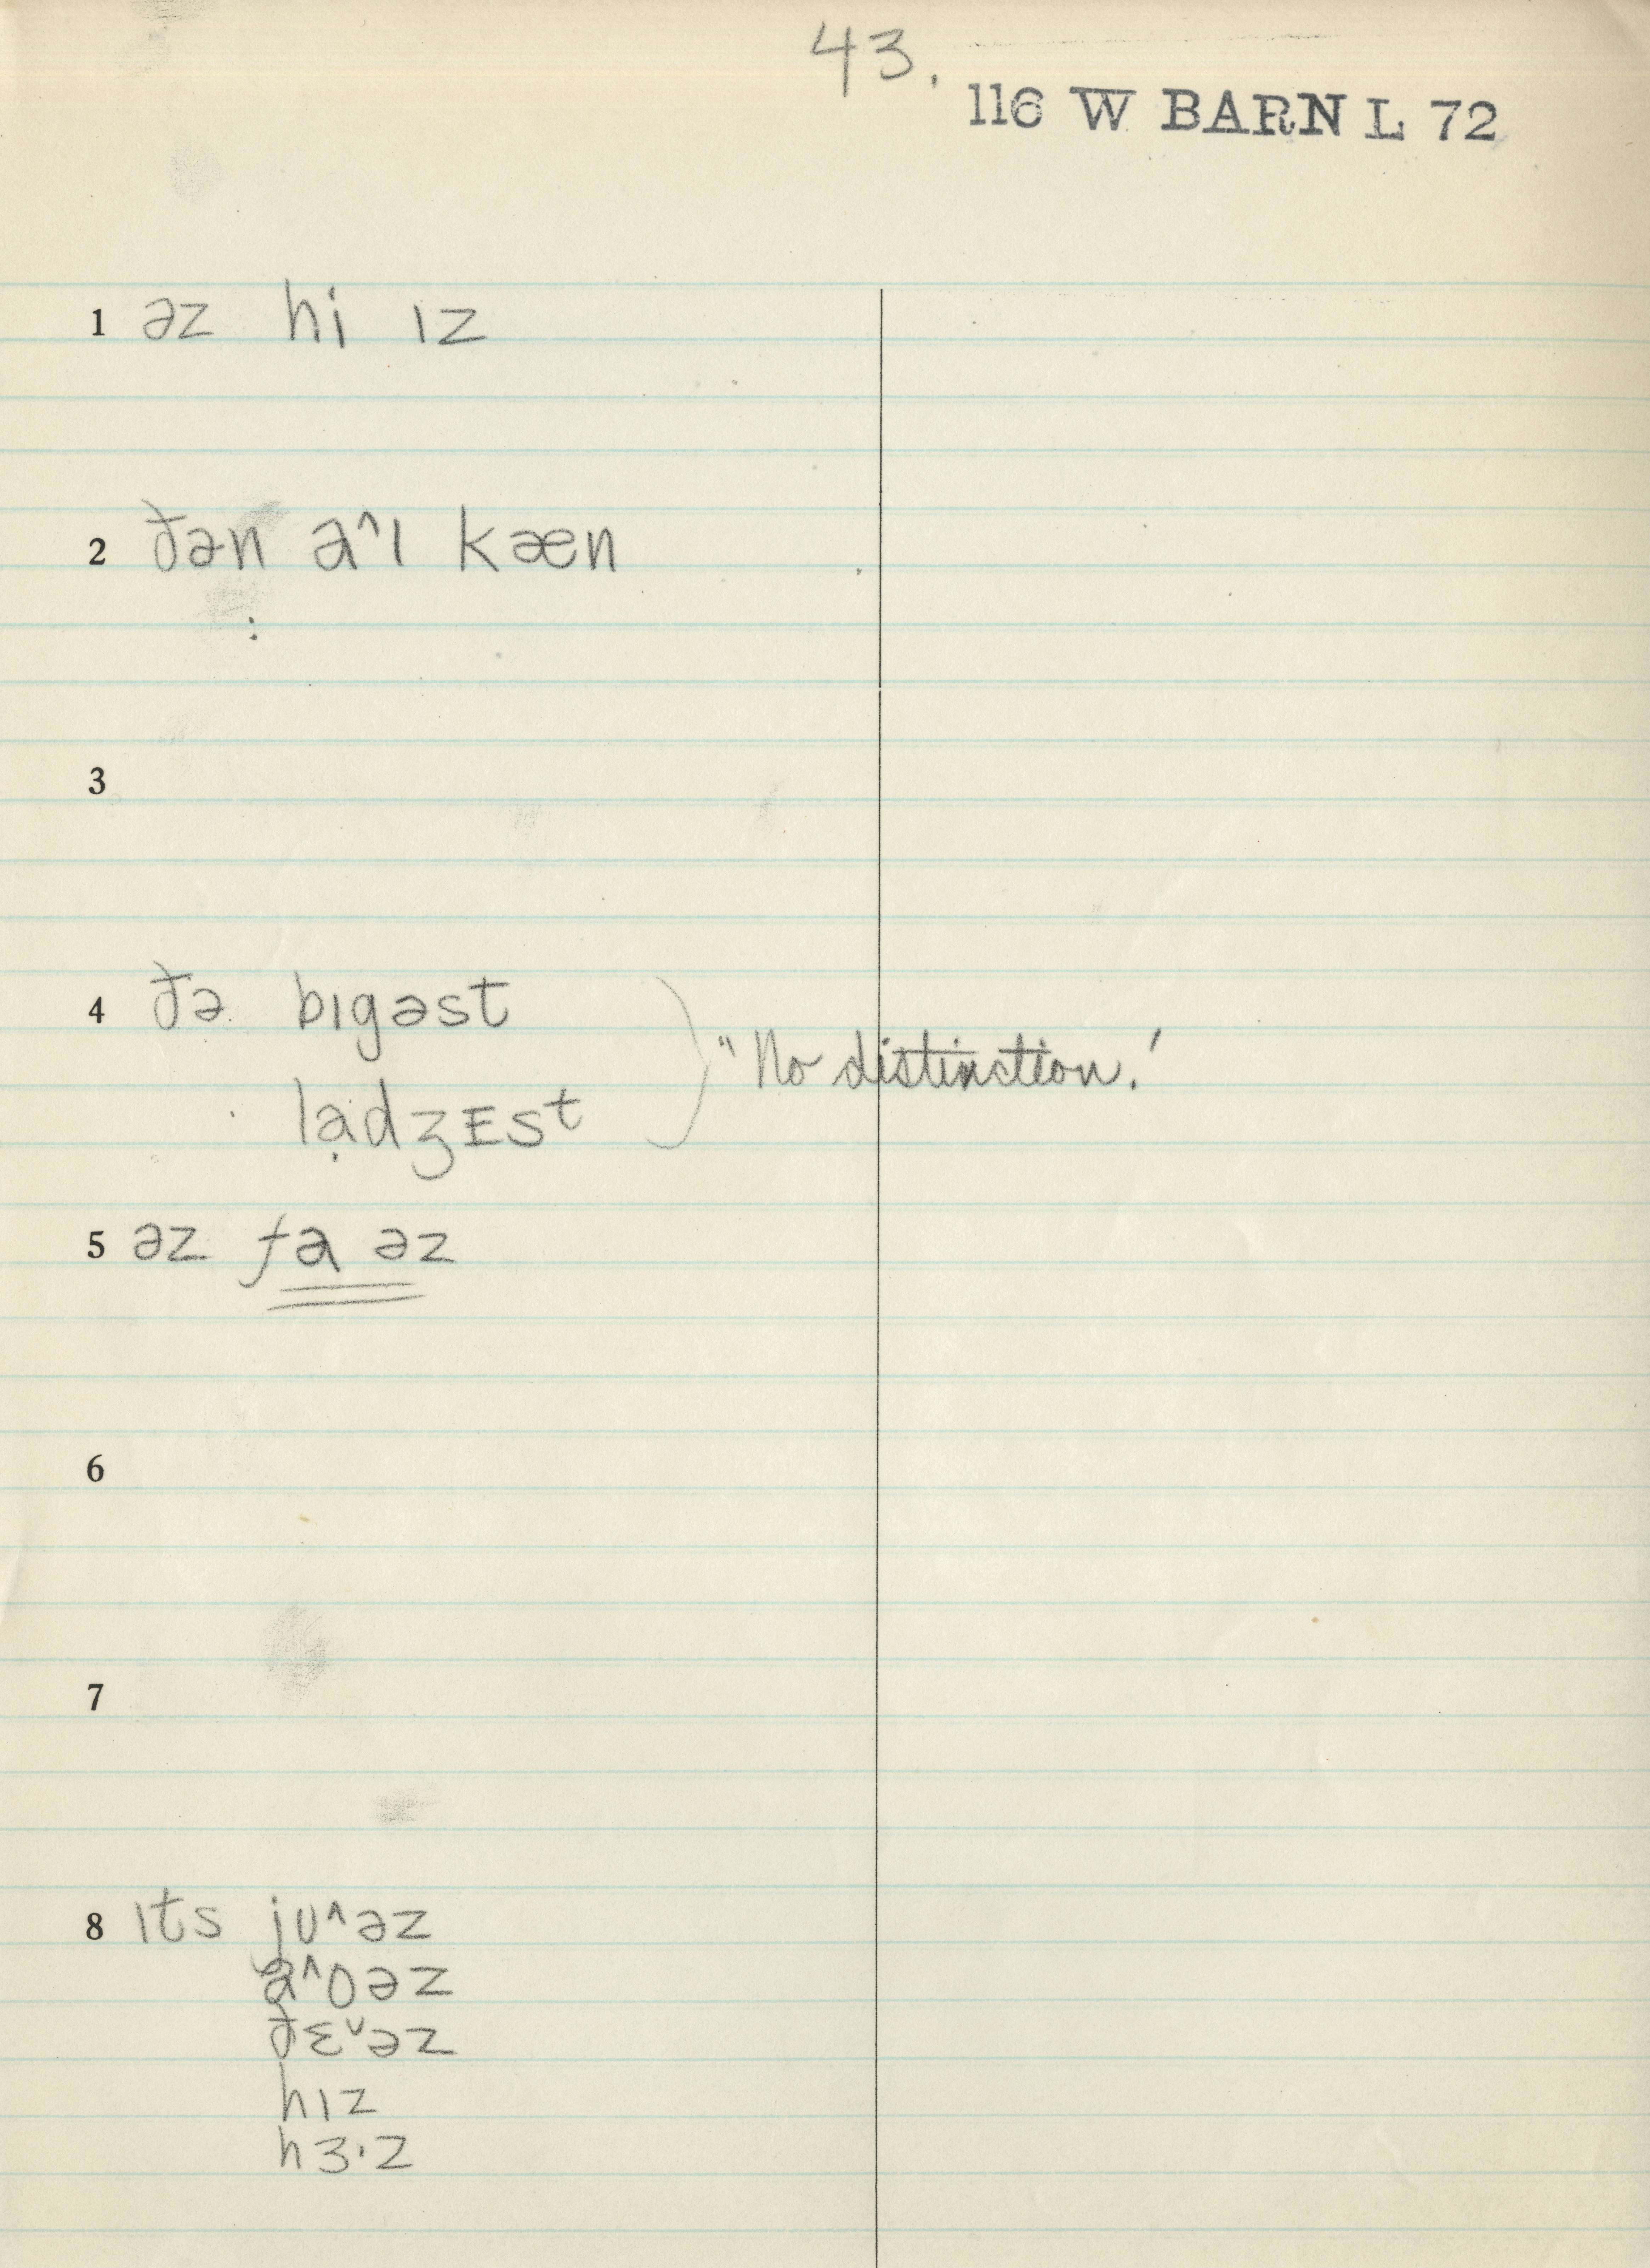 43.
116 W BARN L 72
1 əz hi ɪz
2 ðən a^ɪ kæn
:
3
4 ðə bɪgəst
"No distinction.'
lạdʒEst
5 əz fa əz
6
7
8 ɪts jʊ^əz
a^ʊəz
ðɛˇəz
hɪz
hɜ·z